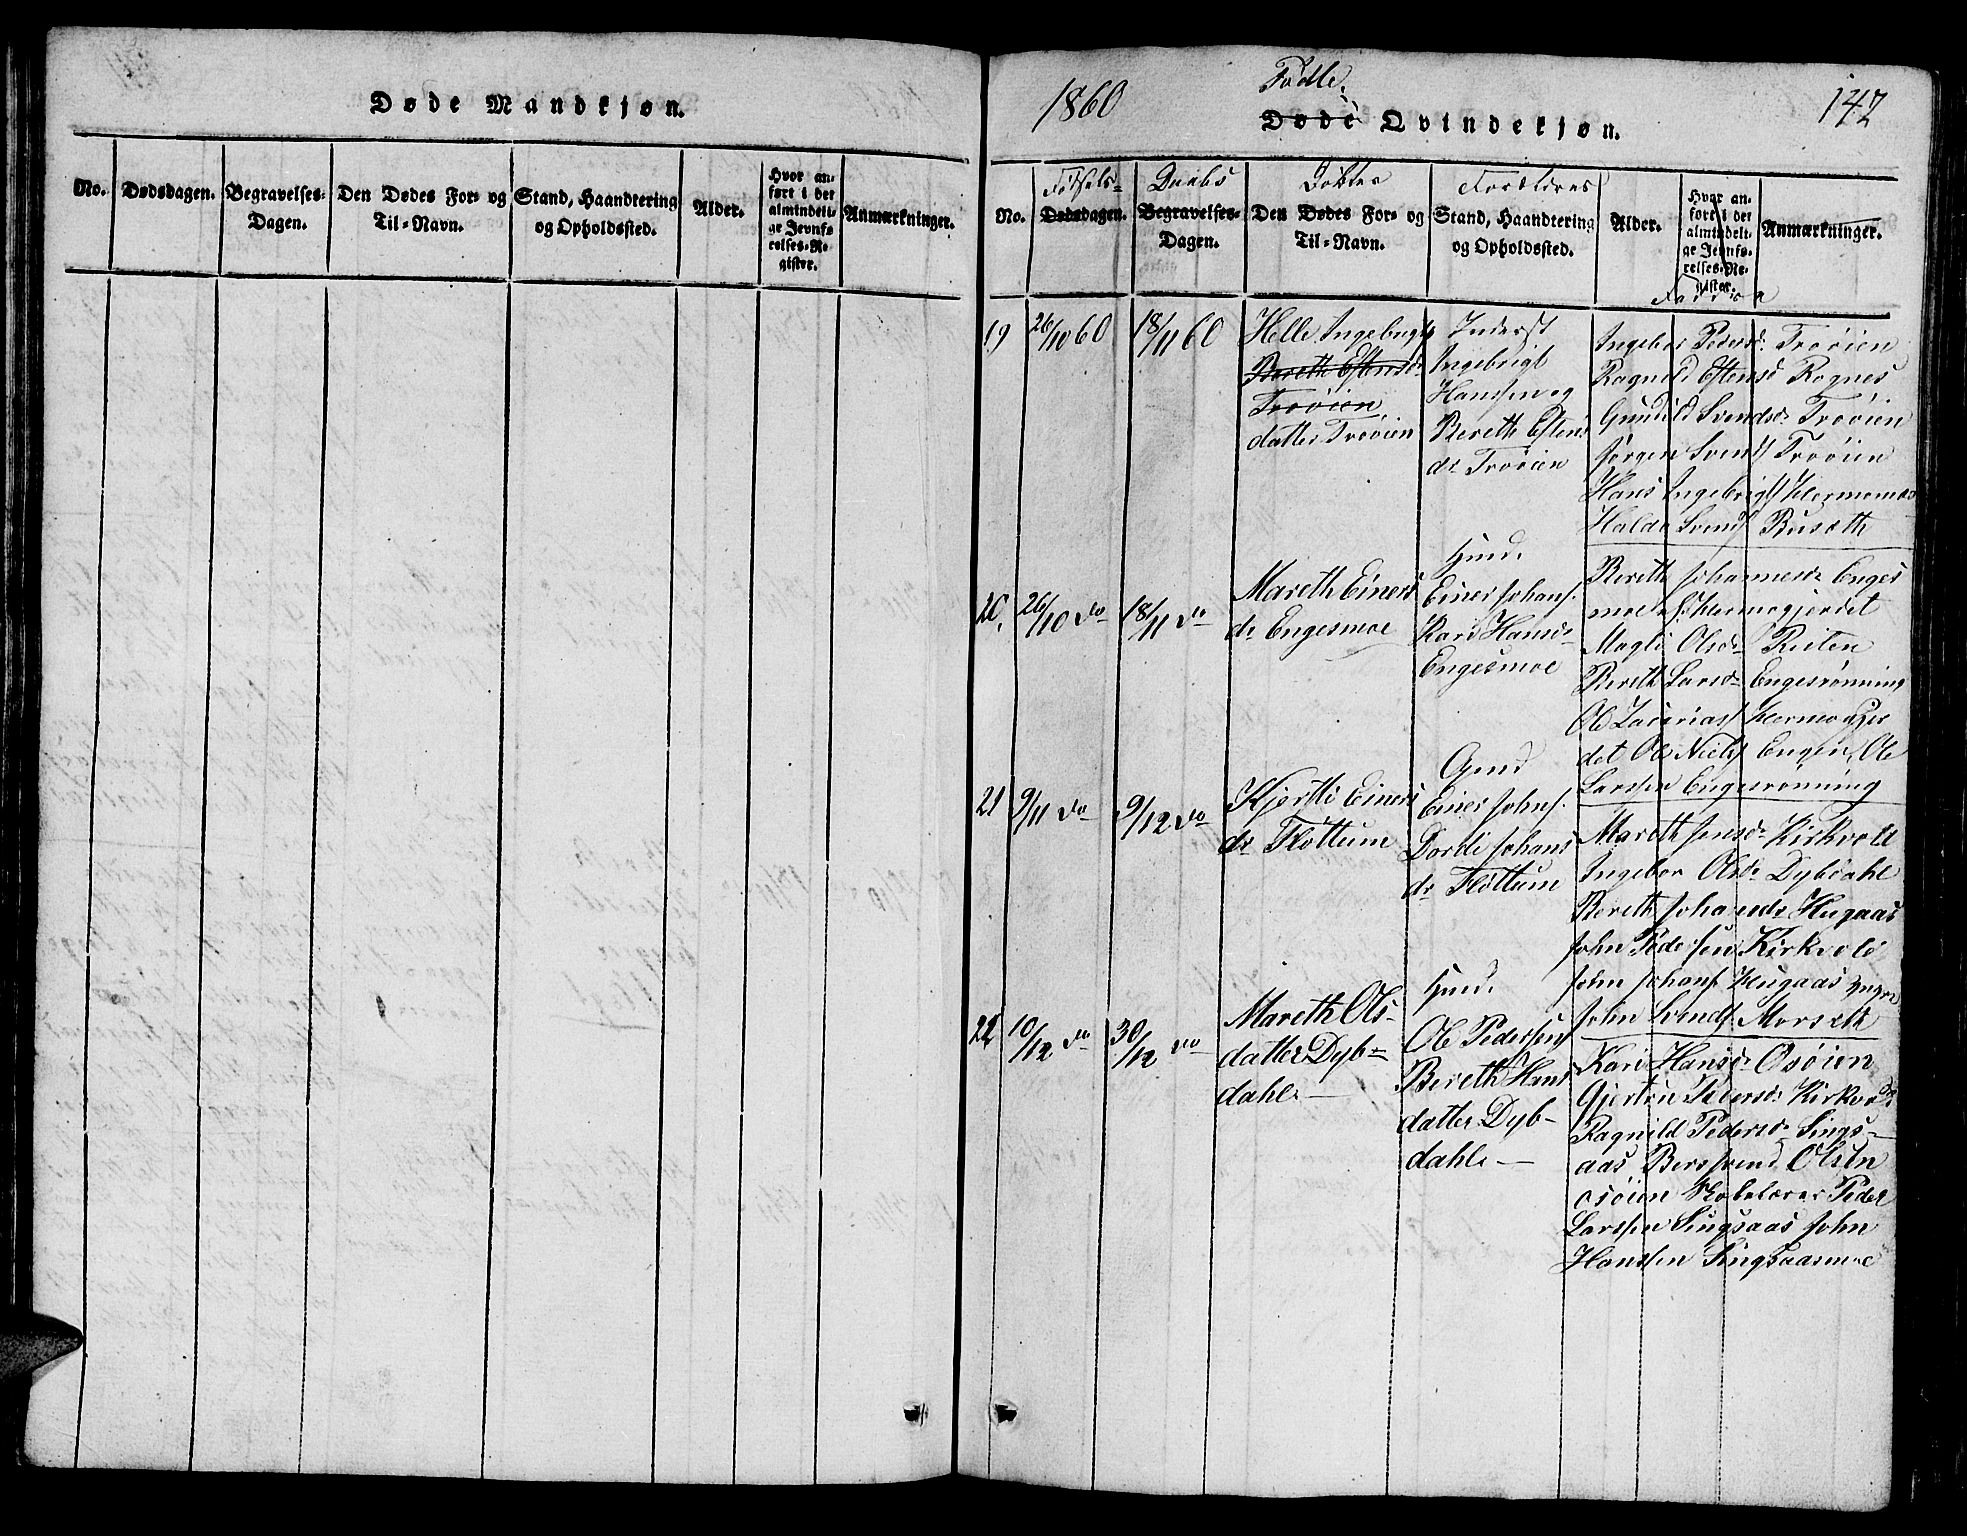 Døde Mandkjøn.
No.
Dødsdagen.
Begravelses-
Dagen.
Den Dødes For- og
Til-Navn.
Stand, Haandtering
og Opholdssted.
Alder.
Hvor an-
ført i det
almindeli-
ge Jevnfø-
relses-Re-
gister.
Anmærkninger.
1860
Fødte
147
Døde Qvindekjøn.
No.
Fødsels-
Dødsdagen.
Daabs
Begravelses-
Dagen.
Den Dødes For- og
Til-Navn.
Forældres
Stand, Haandtering
og Opholdssted.
Alder.
Hvor an-
ført i det
almindeli-
ge Jevnfø-
relses-Re-
gister.
Faddere
Anmærkninger.
19
26/10 60
18/11 60
Helle Ingebrigts
Bereth Estensdr
Trøøien
datter Trøøien
Inderst
Ingebrigt
Hanssen og
Bereth Estens
dr Trøøien
Ingebor Pedersd. Trøøien
Ragnild Estensd Rognes
Gunild Svendsdr Trøøien
Jørgen Svends Trøøien
Hans Ingebrigts
Haldo Svends Busæth
20.
26/10 do
18/11 do
Mareth Einers
dr Engesmoe
Hmd.
Einer Johans.
Kari Hansdr
Engesmoe
Bereth Johannesdr Enges
moe
Magli Olsdr Reiten
Bereth Larsdr Engesrønning
Ole Zacarias
det Ole Niels Engen, Ole
Larssen Engesrønning
21
9/11 do
9/12 do
Kjersti Einers
dr Fløttum
Gmd
Einer Johns.
Dordi Johans
dr Fløttum
Mareth Jensdr Kirkvold
Ingebor Olsdr Dybdahl
Bereth Johansdr Hugaas
John Pedersen Kirkvold
John Johans Hugaas yngre
John Svends Morseth
22
10/12 do
30/12 do
Mareth Ols-
datter Dyb-
dahl
Hmd.
Ole Pedersen
Bereth Hans
datter Dyb-
dahl
Kari Hansdr Osøien
Gjertru Pedersdr Kirkvold
Ragnild Pedersdr Sings-
aas Olsen
Osøien Skolelærer Peder
Larssen Singsaas John
Hanssen Singsaasmoe